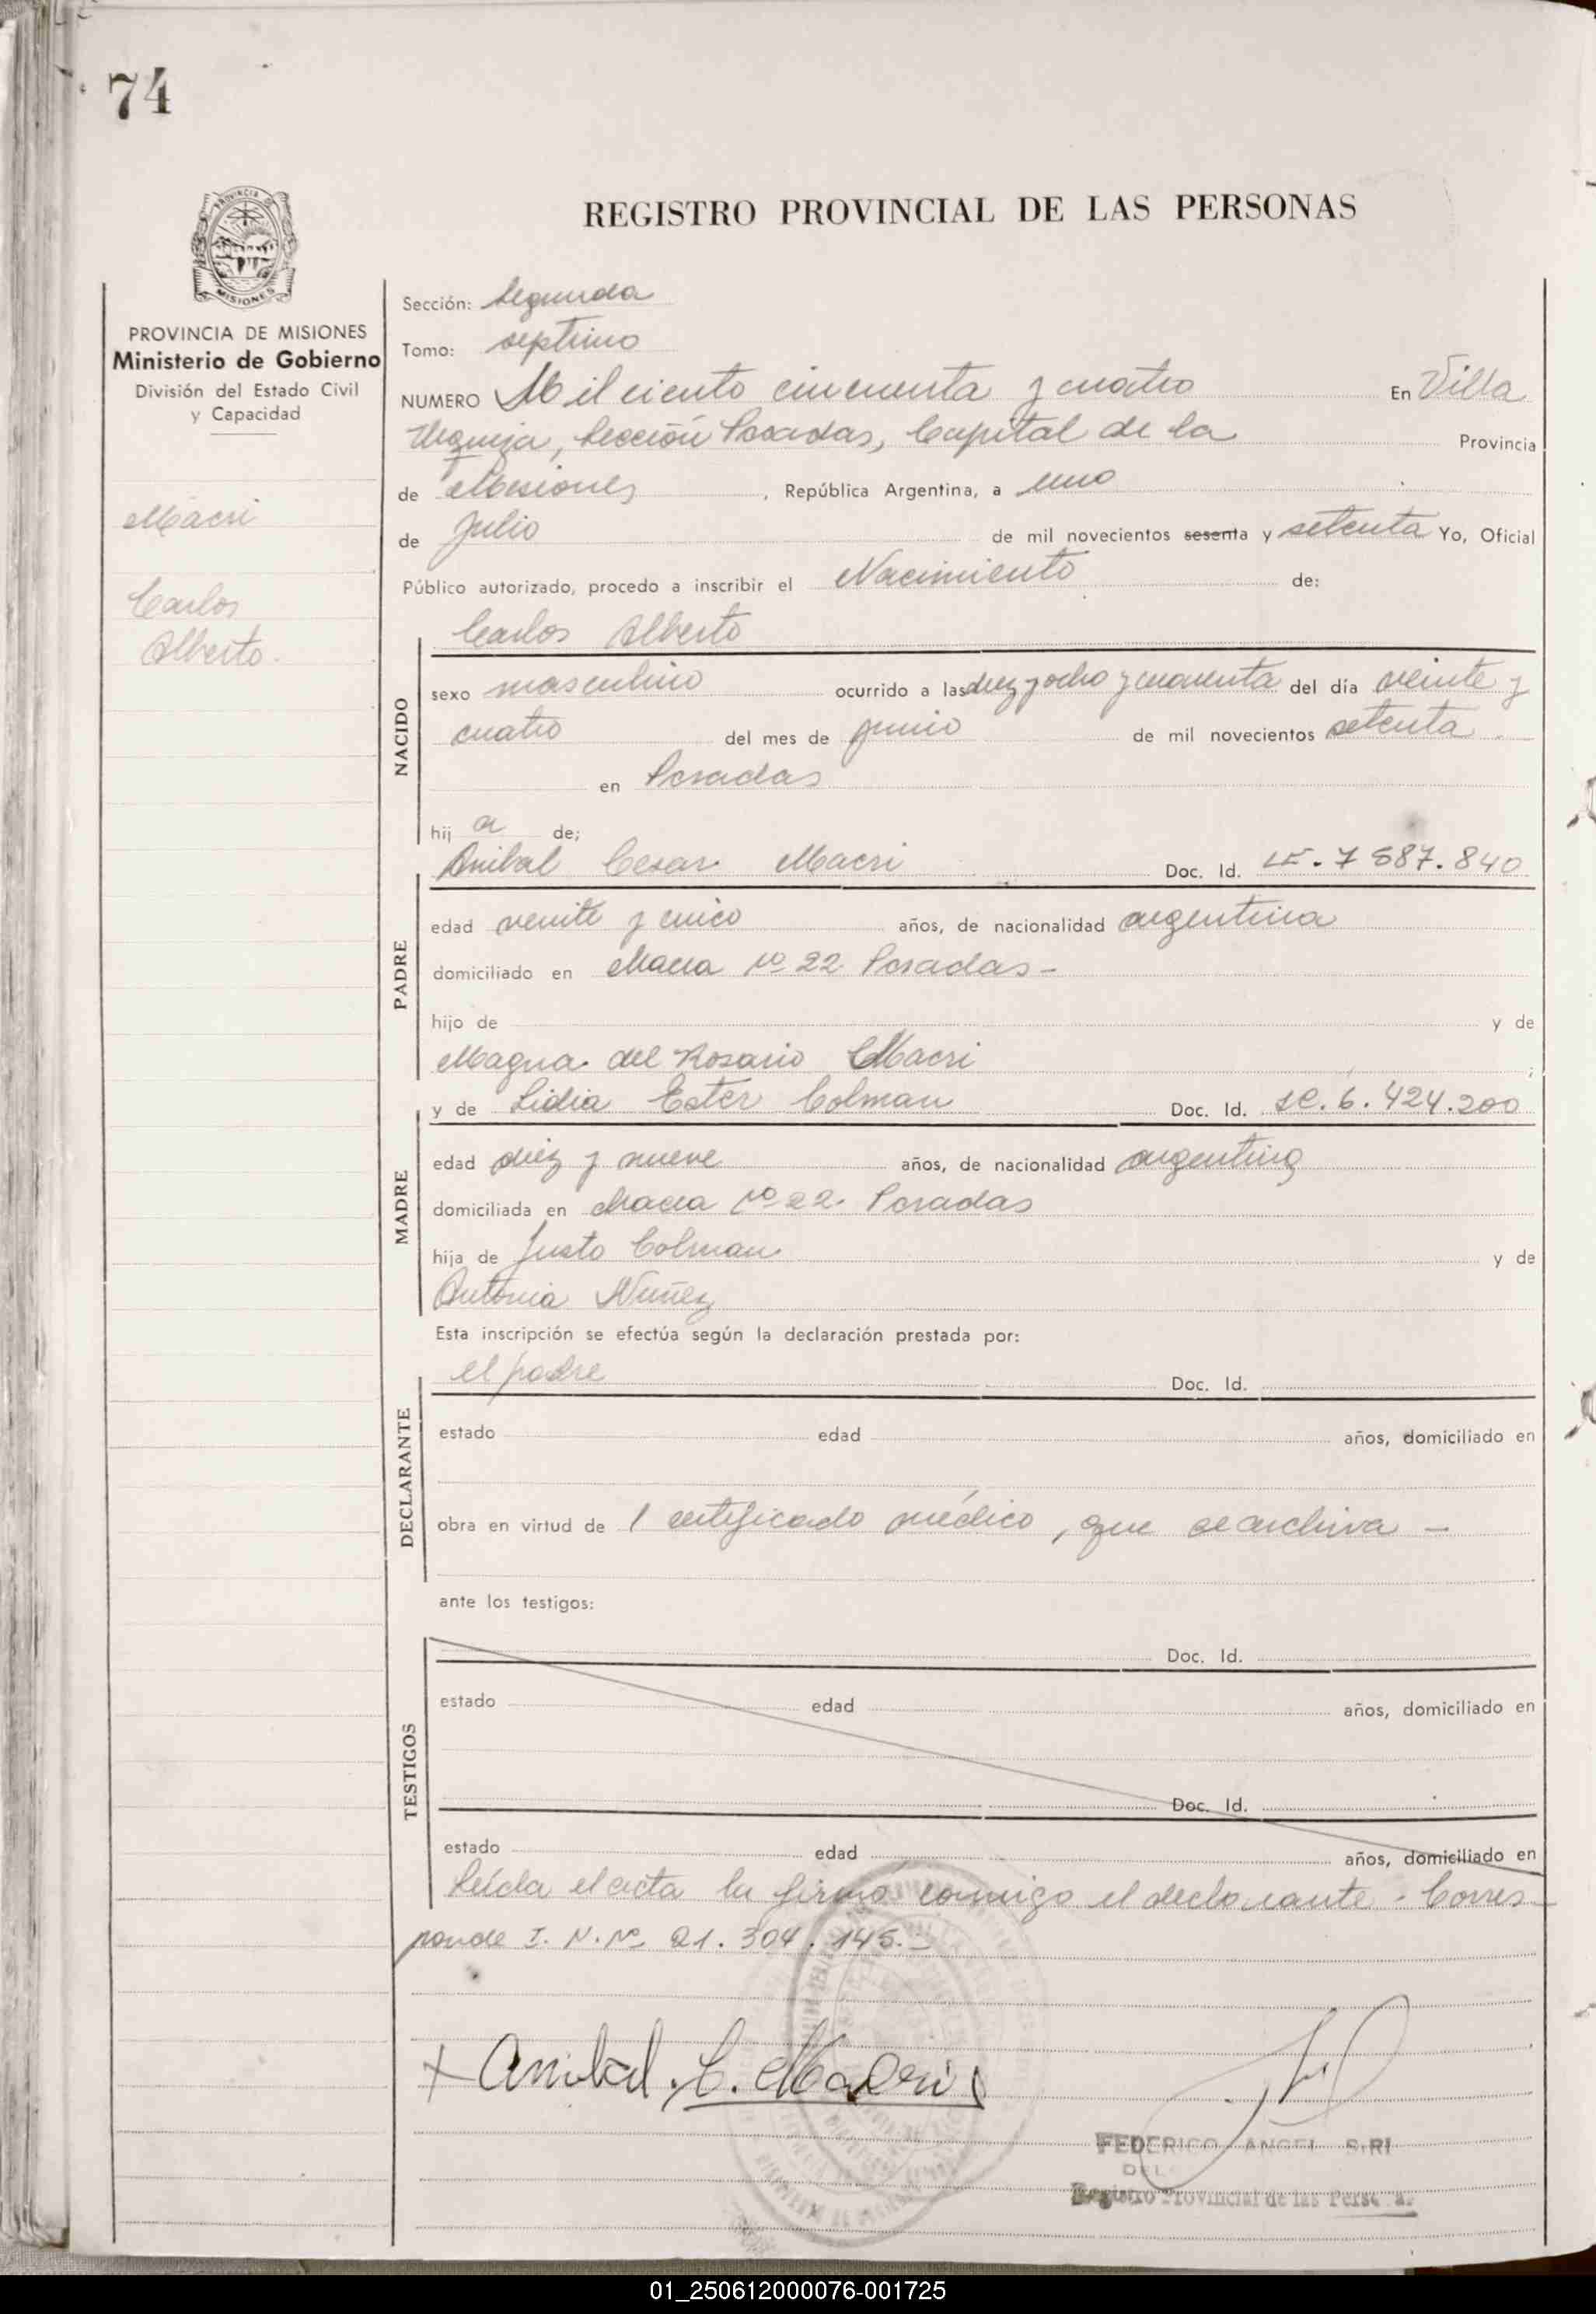 74
REGISTRO PROVINCIAL DE LAS PERSONAS
PROVINCIA DE MISIONES
Ministerio de Gobierno
División del Estado Civil
y Capacidad
Macri
Carlos
Alberto.
Sección: Segunda
Tomo: septimo
NUMERO Mil ciento cincuenta y cuatro En Villa
Urquiza, Sección Posadas, Capital de la Provincia
de Misiones, República Argentina, a uno
de Julio de mil novecientos sesenta y setenta Yo, Oficial
Público autorizado, procedo a inscribir el Nacimiento de:
Carlos Alberto
NACIDO
sexo masculino ocurrido a las diez y ocho y cuarenta del día veinte y
cuatro del mes de junio de mil novecientos setenta.
en Posadas
hij a de;
Anibal Cesar Macri Doc. Id. LE. 7 587.840
PADRE
edad veinte y cinco años, de nacionalidad argentina
domiciliado en Chacra Nº 22 Posadas -
hijo de y de
Magna del Rosario Macri ;
y de Lidia Ester Colman Doc. Id. LC. 6.424.200
MADRE
edad diez y nueve años, de nacionalidad argentina
domiciliada en Chacra Nº 22. Posadas
hija de Justo Colman y de
Antonia Nuñez
Esta inscripción se efectúa según la declaración prestada por:
el padre Doc. Id.
DECLARANTE
estado edad años, domiciliado en
obra en virtud de 1 certificado médico, que se archiva -
ante los testigos:
Doc. Id.
TESTIGOS
estado edad años, domiciliado en
Doc. Id.
estado edad años, domiciliado en
Leída el acta la firmó conmigo el declarante. Corres-
ponde I. N. Nº 21.304.145.-
+ Anibal. C. Macri
FEDERICO ANGEL
DEL
Registro Provincial de las Perso as
01_250612000076-001725